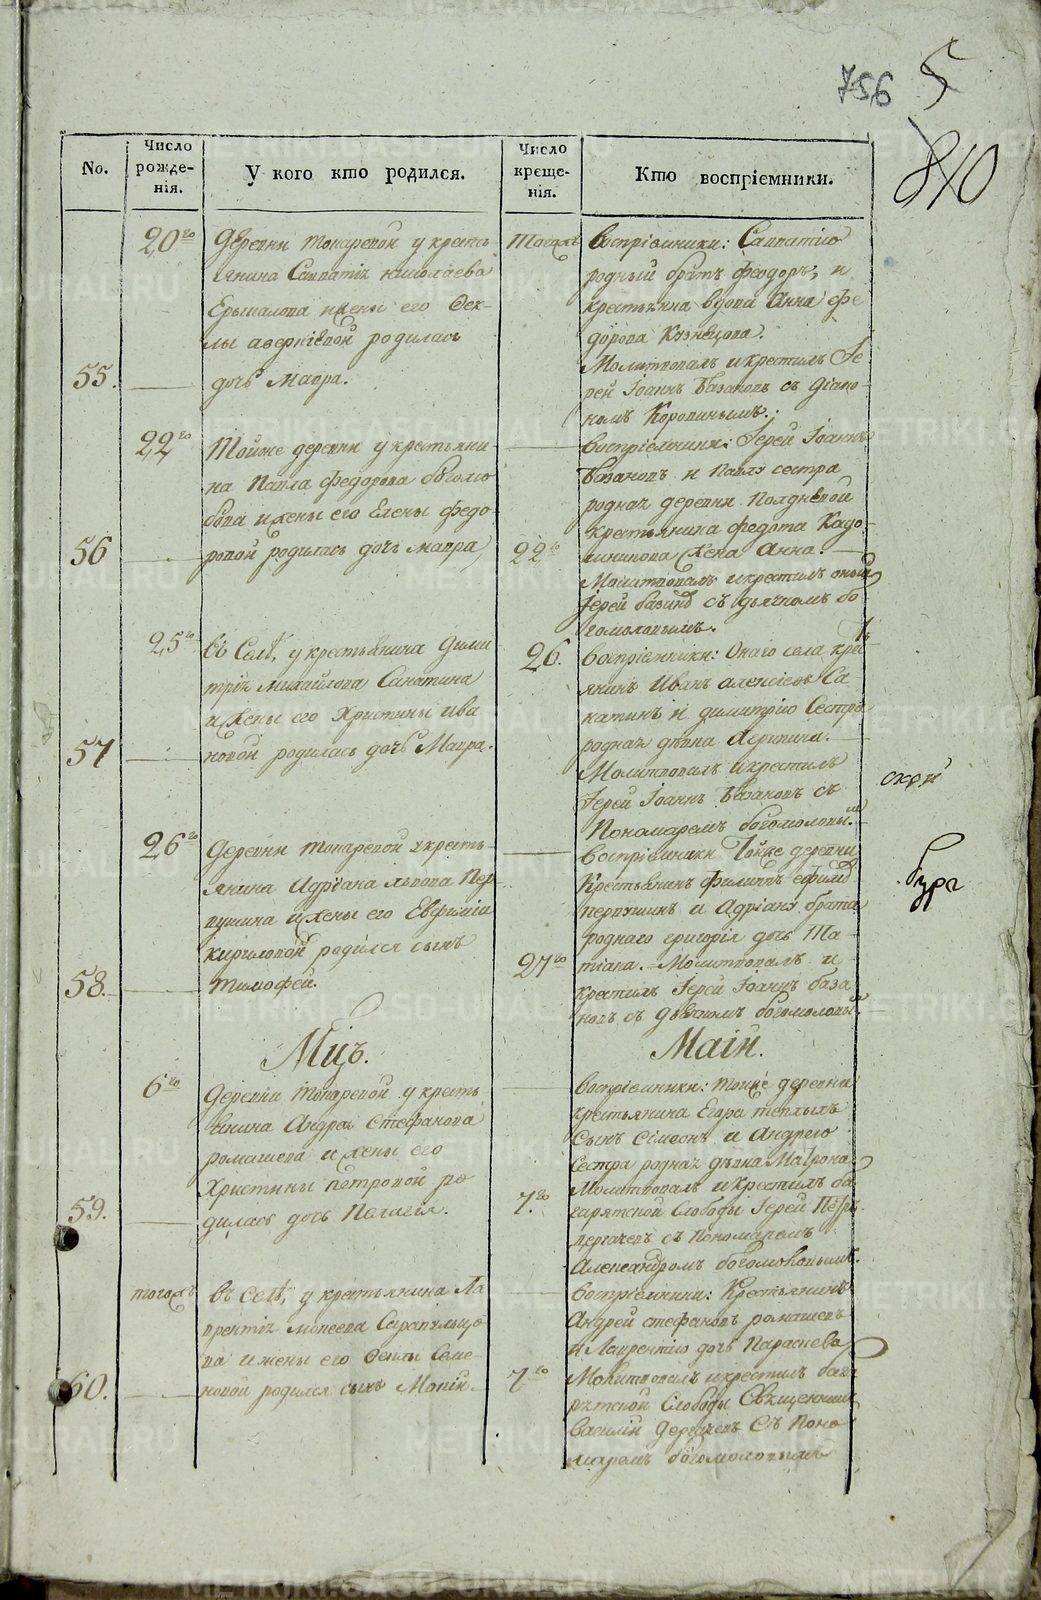 756 5
810
No.
Число рожде-нія.
У кого кто родился.
Число креще-нія.
Кто воспріемники.
20го
Деревни Токаревой у кресть
янина Саватія Николаева
его Фек-
лы Аверкіевой родилась
55.
дочь Мавра.
Тогожъ
Воспріемники: Савватію
родный братъ Феодоръ, и
крестьянка вдова Анна Фе
дорова Кузнецова.
Молитвовалъ и крестилъ Іе
рей Іоаннъ Базановъ съ діако-
номъ Коровинымъ.
22го
Тойже деревни у крестьяни
на Павла Федорова Боголю
бова и жены его Елены Федо-
56
ровой родилась дочь Мавра
22го
Воспріемники: Іерей Іоаннъ
Базановъ и Павлу сестра
родная деревни Полдневой
крестьянина Федота
жена Анна.
Молитвовалъ и крестилъ оный
Іерей Базановъ съ дьячкомъ Бо
гомоловымъ.
25го
Въ Селѣ, у крестьянина Дими
трія Михайлова Сакатина
и жены его Христины Ива
57
новой родилась дочь Мавра.
26.
Воспріемники: Онаго села крть
янинъ Иванъ Алексіевъ Са
катинъ и Димитрію Сестра
родная дѣвка
Молитвовалъ и крестилъ
Іерей Іоаннъ Базановъ съ
Пономаремъ Богомоловы.мъ
ской
26го
Деревни Токаревой у кресть-
янина Адріана Львова Пер
пушина и жены его Евфиміи
Кириловой родился сынъ
58.
Тимофей.
27го
Воспріемники Тойже деревни
Крестьянинъ Филиппъ
Перпушинъ и Адріану брата
роднаго Григорія дочь Та-
тіана. Молитвовалъ и
крестилъ Іерей Іоаннъ База
новъ съ дьячкомъ Богомоловым
бург
Мцъ.
Маій.
6го
Деревни Токаревой у кресть
янина Андрея Стефанова
Ромашева и жены его
Христины Петровой ро
59.
дилась дочь Пелагія.
7.го
Воспріемники: Тойже деревни
крестьянина Егора Теплыхъ
Сынъ Сімеонъ и Андрею
Сестра родная дѣвка Матрона
Молитвовалъ и крестилъ Ба
гарятской Слободы Іерей Петръ
Дергачевъ съ Пономаремъ
Александромъ Богомоловымъ.
тогожъ
Въ Селѣ, у крестьянина Ла
врентія Моисеева Сарапульцо
ва и жены его Феклы Семе-
60.
новой родился сынъ Мокій.
7.го
Воспріемники: Крестьянинъ
Андрей Стефановъ Ромашевъ
и Лаврентію дочь Параскева
Молитвовалъ и крестилъ Бага
рятской Слободы Священникъ
Василій Дергачевъ Съ Поно
маремъ Богомоловымъ